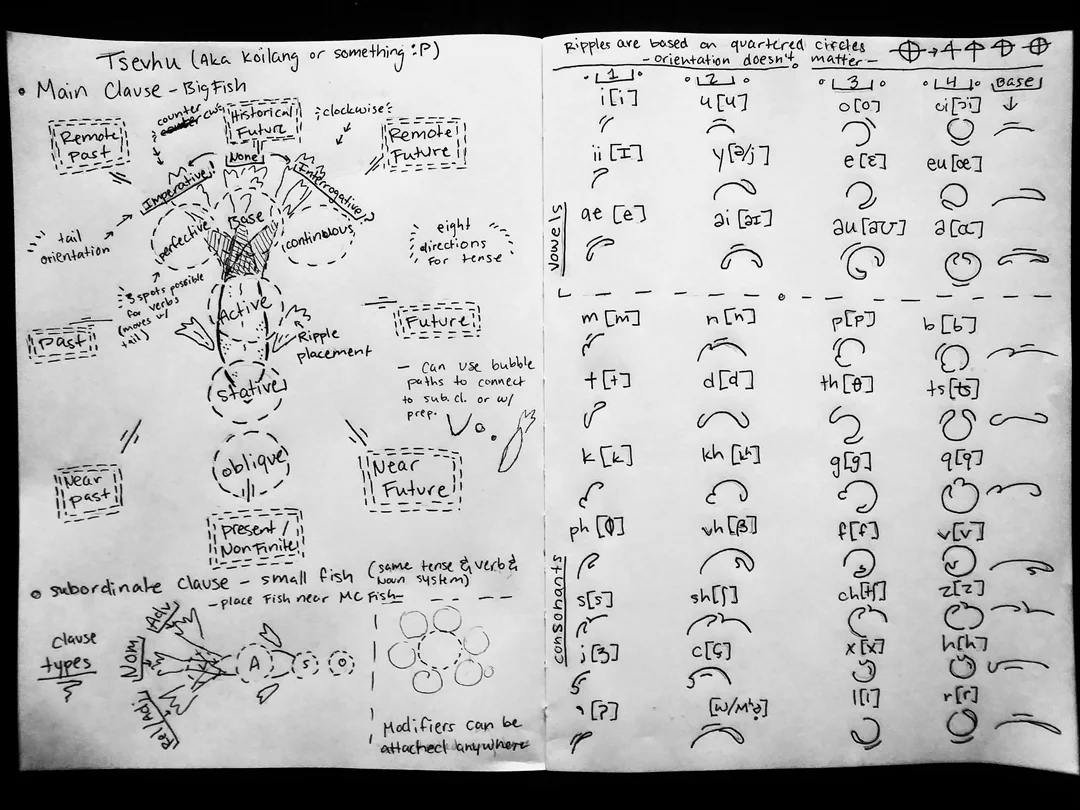 Tsevhu (Aka Koilang or something :P)
• Main Clause - BigFish
Remote
Past
counter
cw
Historical
Future
clockwise
Remote
Future
None
Imperative
Interrogative
tail
orientation
perfective
Base
continuous
eight
directions
for tense
3 spots possible
for verbs
(moves w/
tail)
Active
Past
Future
Ripple
placement
- Can use bubble
paths to connect
to sub.cl. or w/
prep.
stative
oblique
Near
past
Near
Future
present/
NonFinite
• subordinate clause - small fish (same tense & verb &
Noun system)
- place Fish near MC Fish
clause
types
Adv
Nom
Rel/Adj
V
A
S
O
Modifiers can be
attached anywhere
Ripples are based on quartered circles
- orientation doesn't matter -
1 2 3 4 BASE
i[i] u[u] o[o] oi[ɔi]
ii[ɪ] y[ə/j] e[ɛ] eu[œ]
ae[e] ai[aɪ] au[aʊ] a[ɑ]
vowels
m[m] n[n] p[p] b[b]
t[t] d[d] th[θ] ts[ts]
k[k] kh[kʰ] g[g] q[q]
ph[ɸ] vh[β] f[f] v[v]
consonants
s[s] sh[ʃ] ch[tʃ] z[z]
j[ʒ] c[ç] x[x] h[h]
'[ʔ] l[l] r[r]